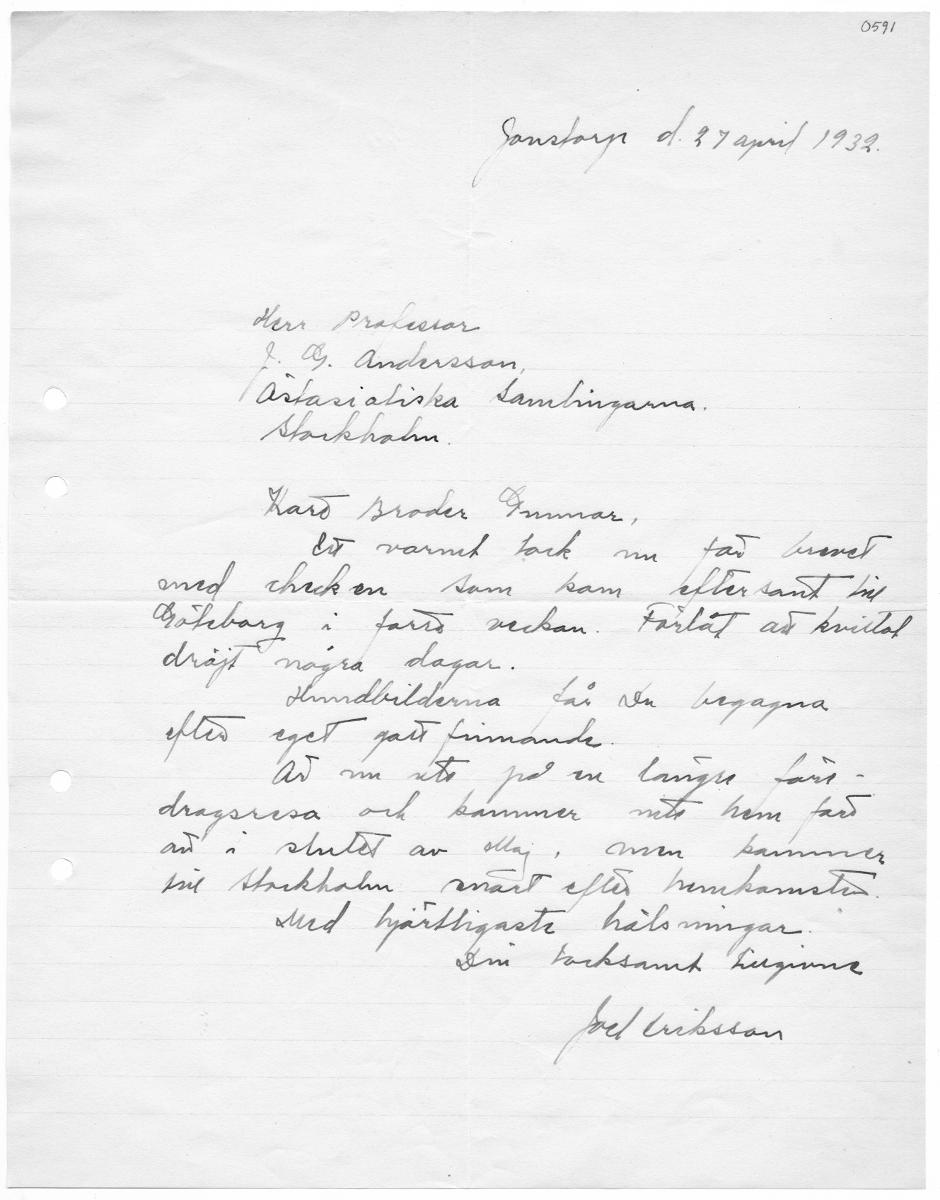 0591
Jonstorp d. 27 april 1932.
Herr Professor
J. G. Andersson,
Östasiatiska Samlingarna.
Stockholm.
Käre Broder Gunnar,
Ett varmt tack nu för brevet
med checken som kom eftersänt till
Göteborg i förra veckan. Förlåt att kvittot
dröjt några dagar.
Hundbilderna får Du begagna
efter eget gott finnande.
Är nu ute på en längre före-
dragsresa och kommer inte hem förr
än i slutet av Maj, men kommer
till Stockholm snart efter hemkomsten.
Med hjärtligaste hälsningar.
Din tacksamt tillgivne
Joel Eriksson